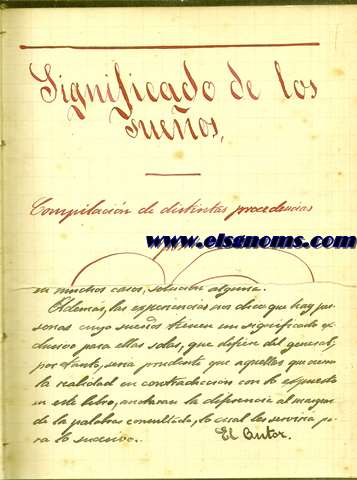 Significado de los
sueños,
Compilación de distintas procedencias
por
www.elsgnoms.com
en muchos casos, solución alguna.
Además, las experiencias nos dice que hay per-
sonas cuyo sueños tienen un significado ex-
clusivo para ellas solas, que difiere del general,
por tanto, sería prudente que aquellas que vieran
la realidad en contradicción con lo expuesto
en este libro, anotaran la diferencia al margen
de la palabra consultada, lo cual les serviría pa-
ra lo sucesivo.
El Autor.